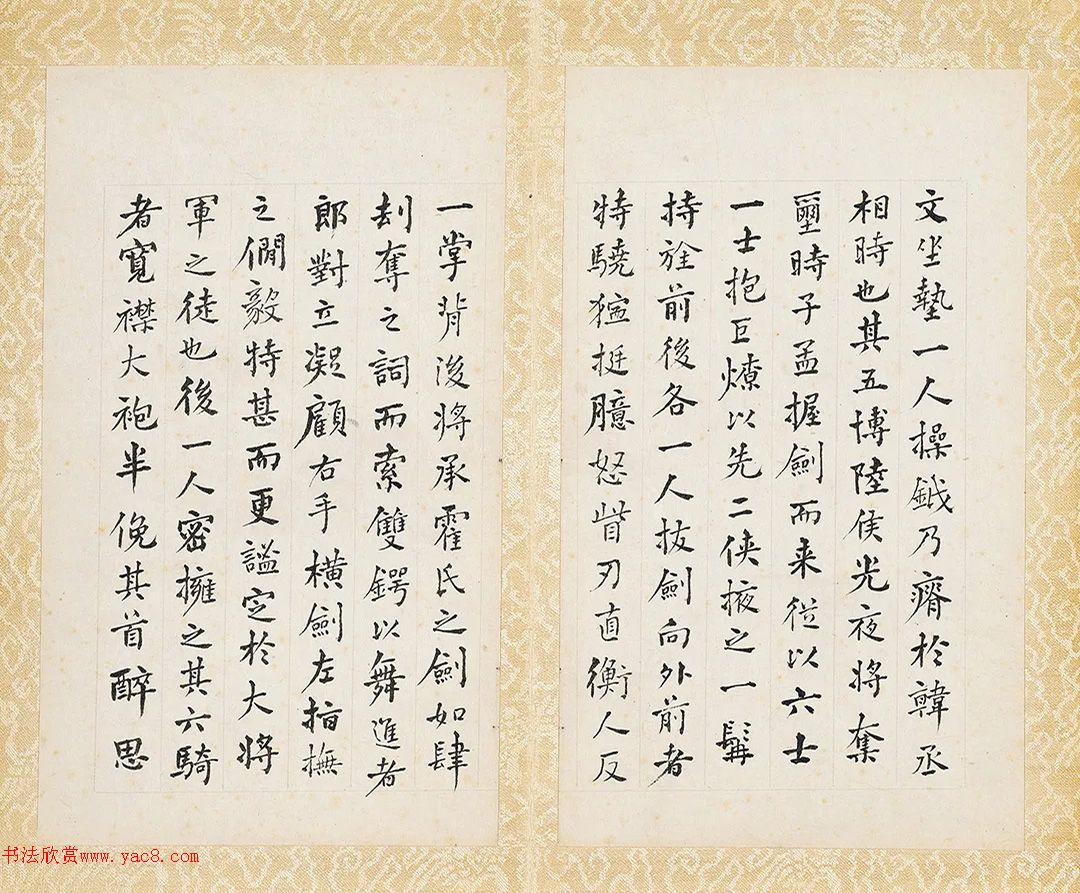 文坐墊一人操鉞乃膺於韓丞
相時也其五博陸侯光夜將奪
璽時子孟握劍而来從以六士
一士抱巨燎以先二侠掖之一髯
持旌前後各一人拔劍向外前者
特驍猛挺臆怒眥刃直衝人反
一掌背後將承霍氏之劍如肆
刦奪之詞而索雙鍔以舞進者
郎對立凝顧右手橫劍左指撫
之僩毅特甚而更謐定於大將
軍之徒也後一人密擁之其六騎
者寬襟大袍半俛其首醉思
书法欣赏www.yac8.com